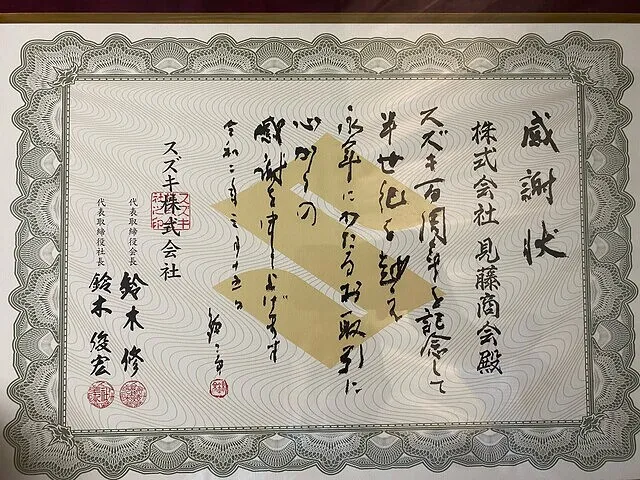 感謝状
株式会社 見藤商会殿
スズキ百周年を記念して
半世紀を越え
永年にわたるお取引に
心からの
感謝を申しあげます
令和二年三月十五日
スズキ株式会社
代表取締役会長 鈴木 修
代表取締役社長 鈴木 俊宏